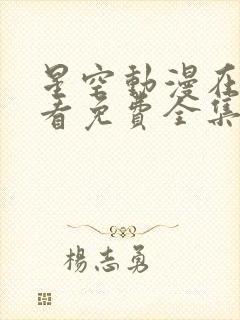 星空動漫在
看免費全集
楊志勇